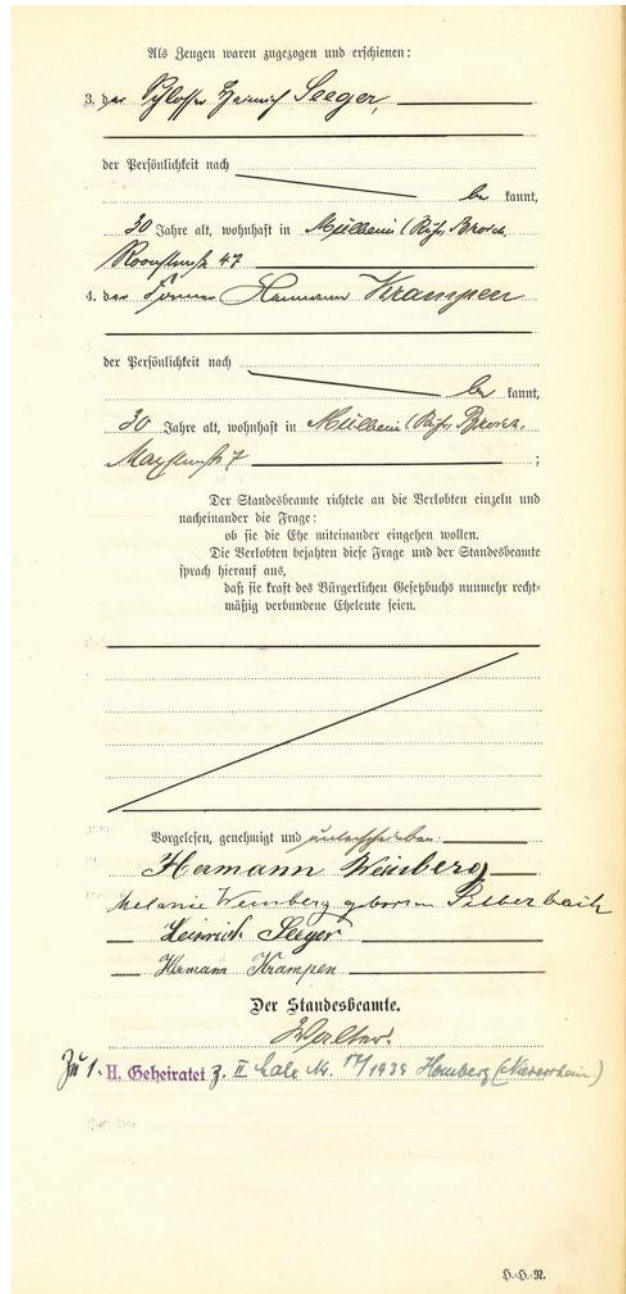 Als Zeugen waren zugezogen und erschienen:
3. der Schlosser Heinrich Seeger,
der Persönlichkeit nach
be kannt,
30 Jahre alt, wohnhaft in Mülheim (Ruhr) Broich,
Roonstraße 47
4. der Former Hermann Krampen
der Persönlichkeit nach
be kannt,
30 Jahre alt, wohnhaft in Mülheim (Ruhr) Broich,
7 ;
Der Standesbeamte richtete an die Verlobten einzeln und
nacheinander die Frage:
ob sie die Ehe miteinander eingehen wollen.
Die Verlobten bejahten diese Frage und der Standesbeamte
sprach hierauf aus,
daß sie kraft des Bürgerlichen Gesetzbuchs nunmehr recht-
mäßig verbundene Eheleute seien.
Vorgelesen, genehmigt und unterschrieben:
Hermann Weinberg
Melanie Weinberg geborene Silberbach
Heinrich Seeger
Hermann Krampen
Der Standesbeamte.
Walter.
Zu 1. H. Geheiratet z. II Male Nr. Homberg (Niederrhein)
H.-H.-N.